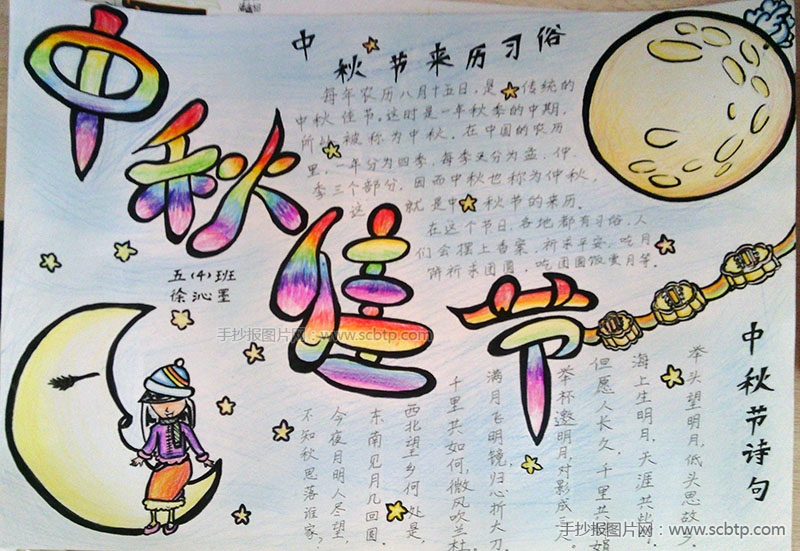 中秋佳节
中秋节来历习俗
每年农历八月十五日,是传统的
中秋佳节。这时是一年秋季的中期,
所以被称为中秋。在中国的农历
里,一年分为四季,每季又分为孟、仲、
季三个部分,因而中秋也称为仲秋。
这就是中秋节的来历。
在这个节日,各地都有习俗,人
们会摆上香案,祈求平安,吃月
饼祈求团圆,吃团圆饭赏月等。
五(4)班
徐沁墨
手抄报图片网:www.scbtp.com
中秋节诗句
举头望明月,低头思故
海上生明月,天涯共
但愿人长久,千里共
举杯邀明月,对影成
满月飞明镜,归心折大刀
千里共如何,微风吹兰杜
西北望乡何处是,
东南见月几回圆。
今夜月明人尽望,
不知秋思落谁家,
手抄报图片网:www.scbtp.com